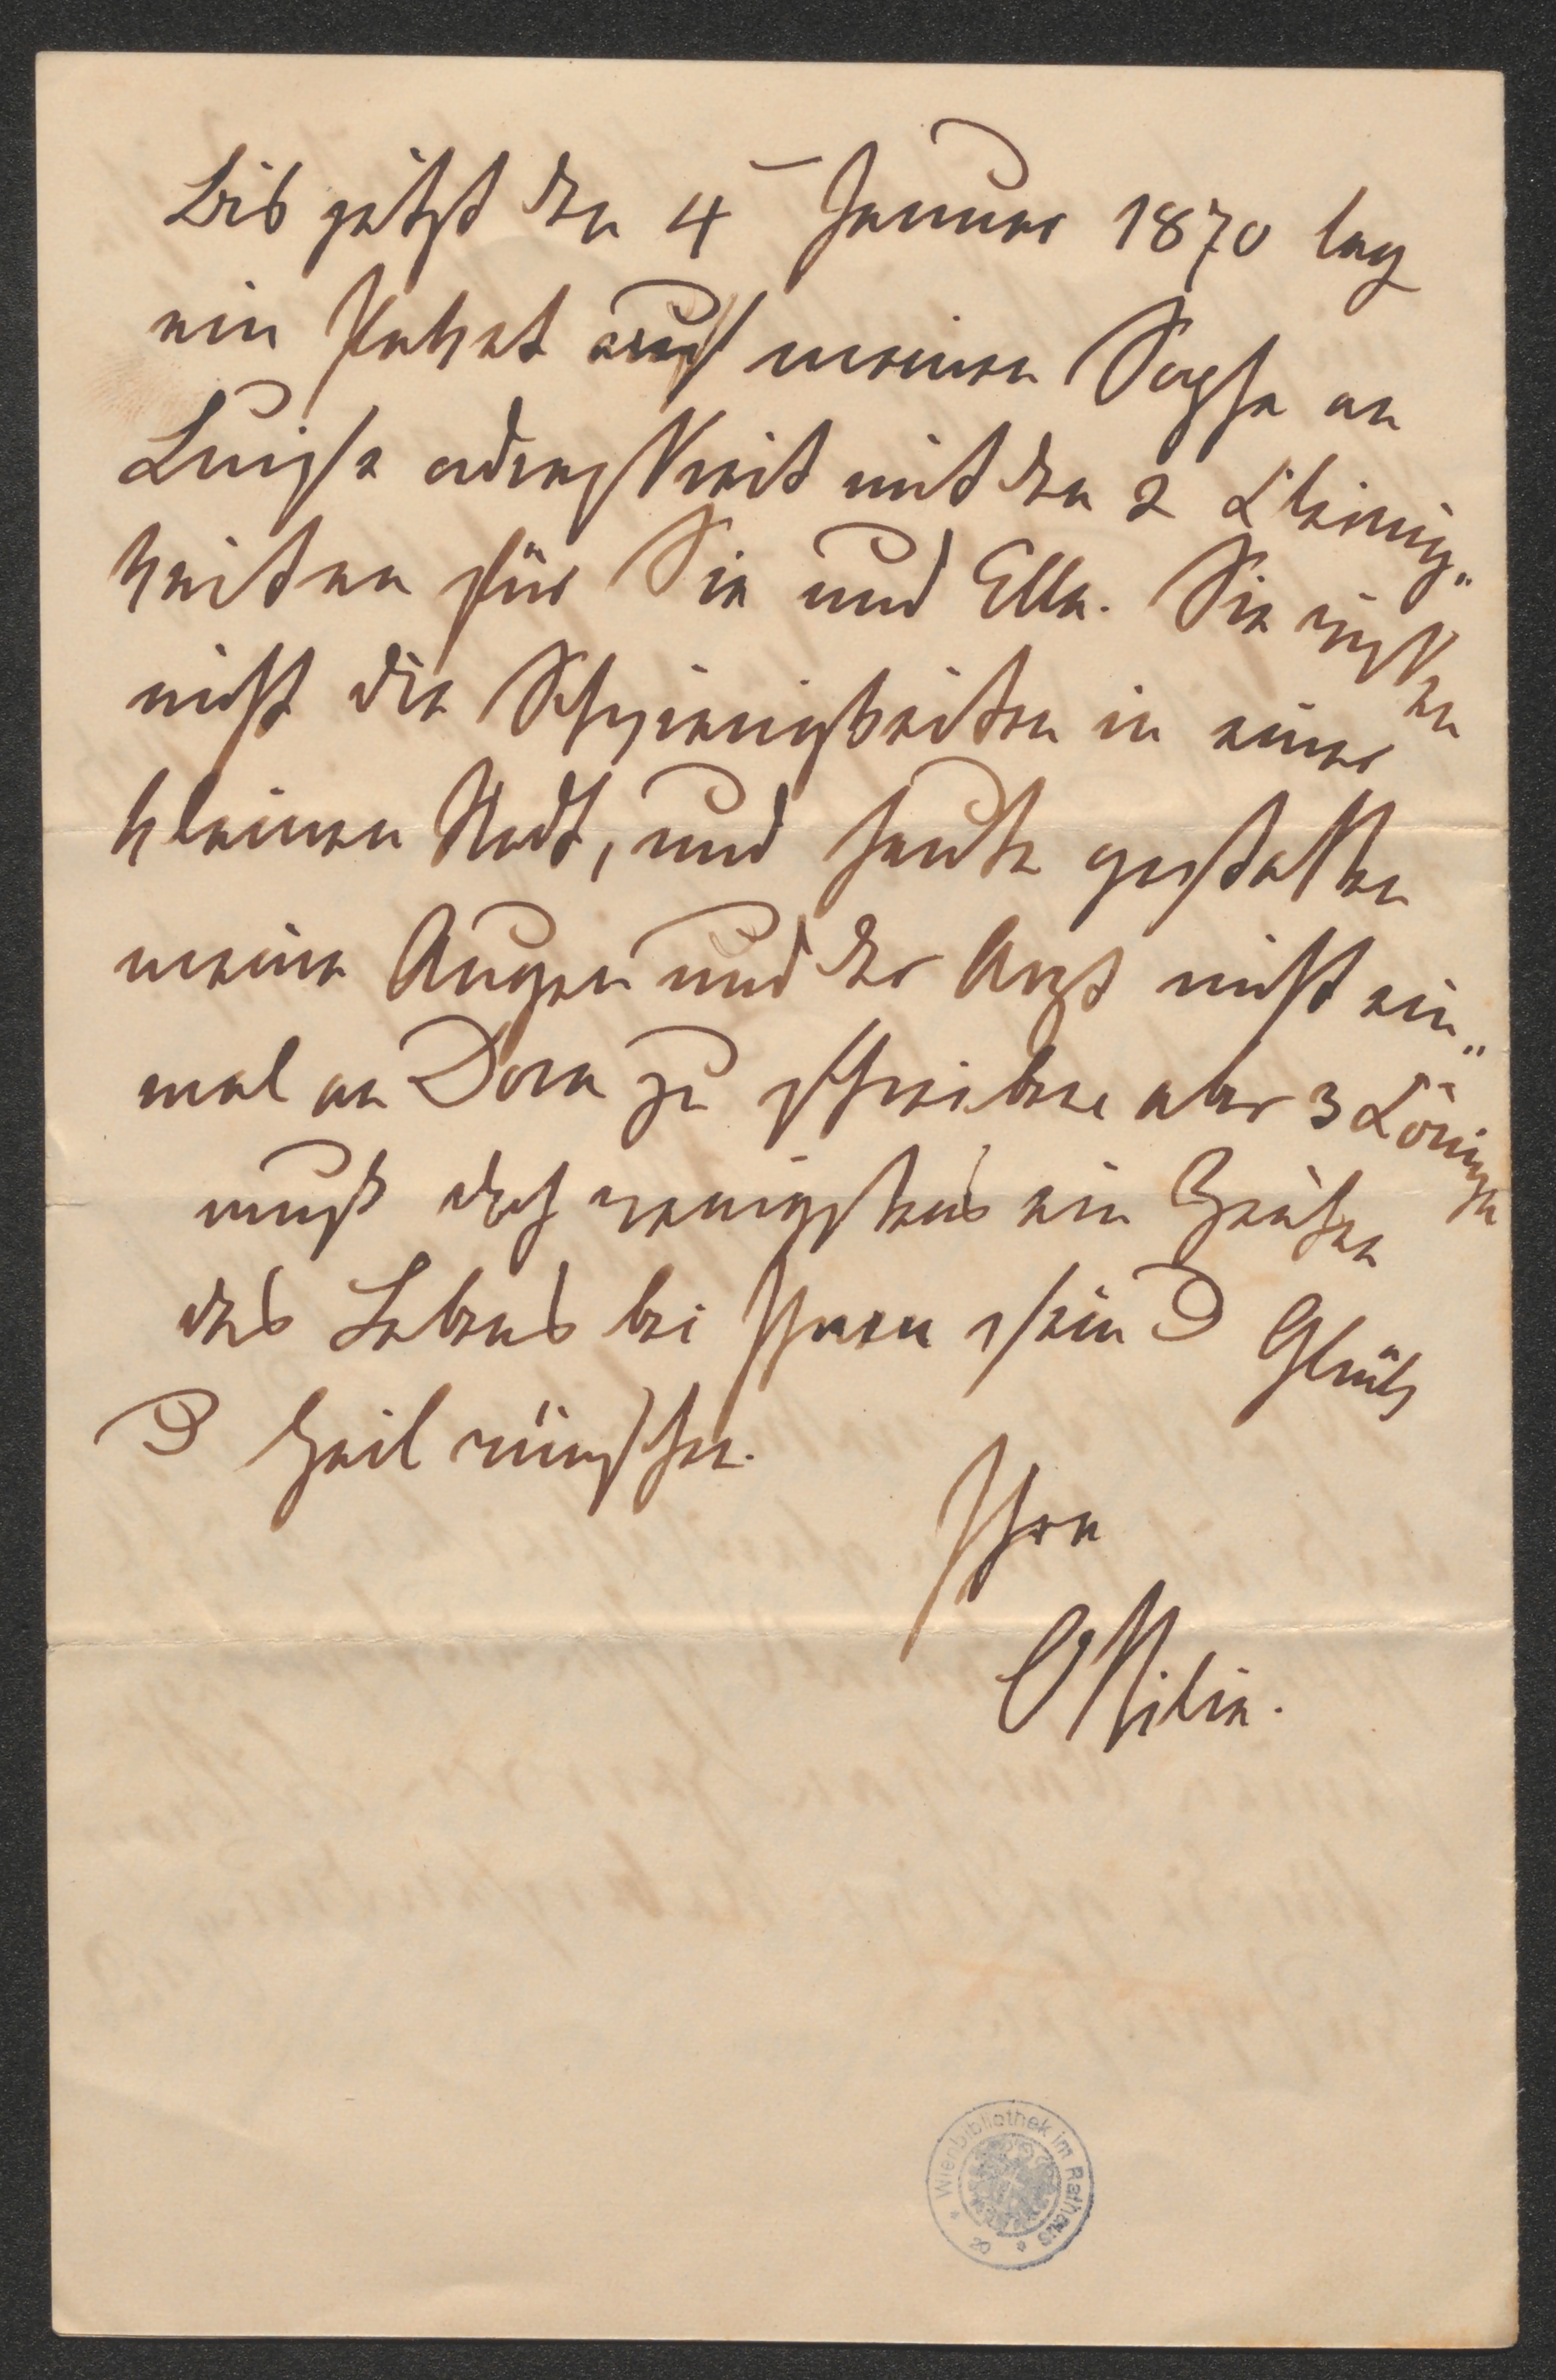 Bis jetzt den 4 Januar 1870 lag
ein Paket auf meinem Sopha an
Luise adressirt mit den 2 Kleinig„
keiten für Sie und Ella. Sie wissen
nicht die Schwierigkeiten in einer
kleinen Stadt, und heute gestatten
meine Augen und der Arzt nicht ein„
mal an Dora zu schreiben aber 3 Könige
muß doch wenigstens ein Zeichen
des Lebens bei Ihnen sein u Glück
u Heil wünschen.
Ihre
Ottilie.
Wienbibliothek im Rathaus